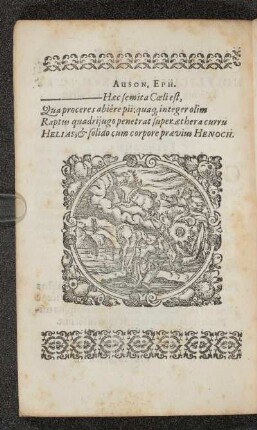 AUSON, EPH.
Hæc semita Cœli est,
Qua proceres abiêre pii; quaq, integer olim
Raptus quadrijugo penetrat super æthera curru
HELIAS; & solido cum corpore prævius HENOCH.